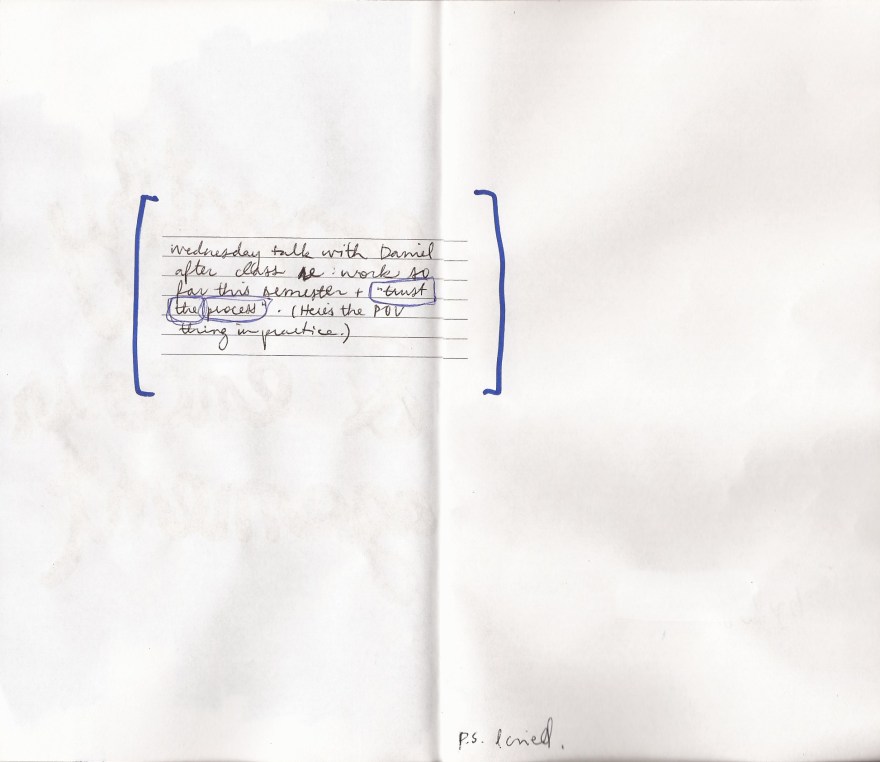 wednesday talk with Daniel
after class re: work so
far this semester + "trust
the process". (Here's the POV
thing in practice.)
P.S. I cried.